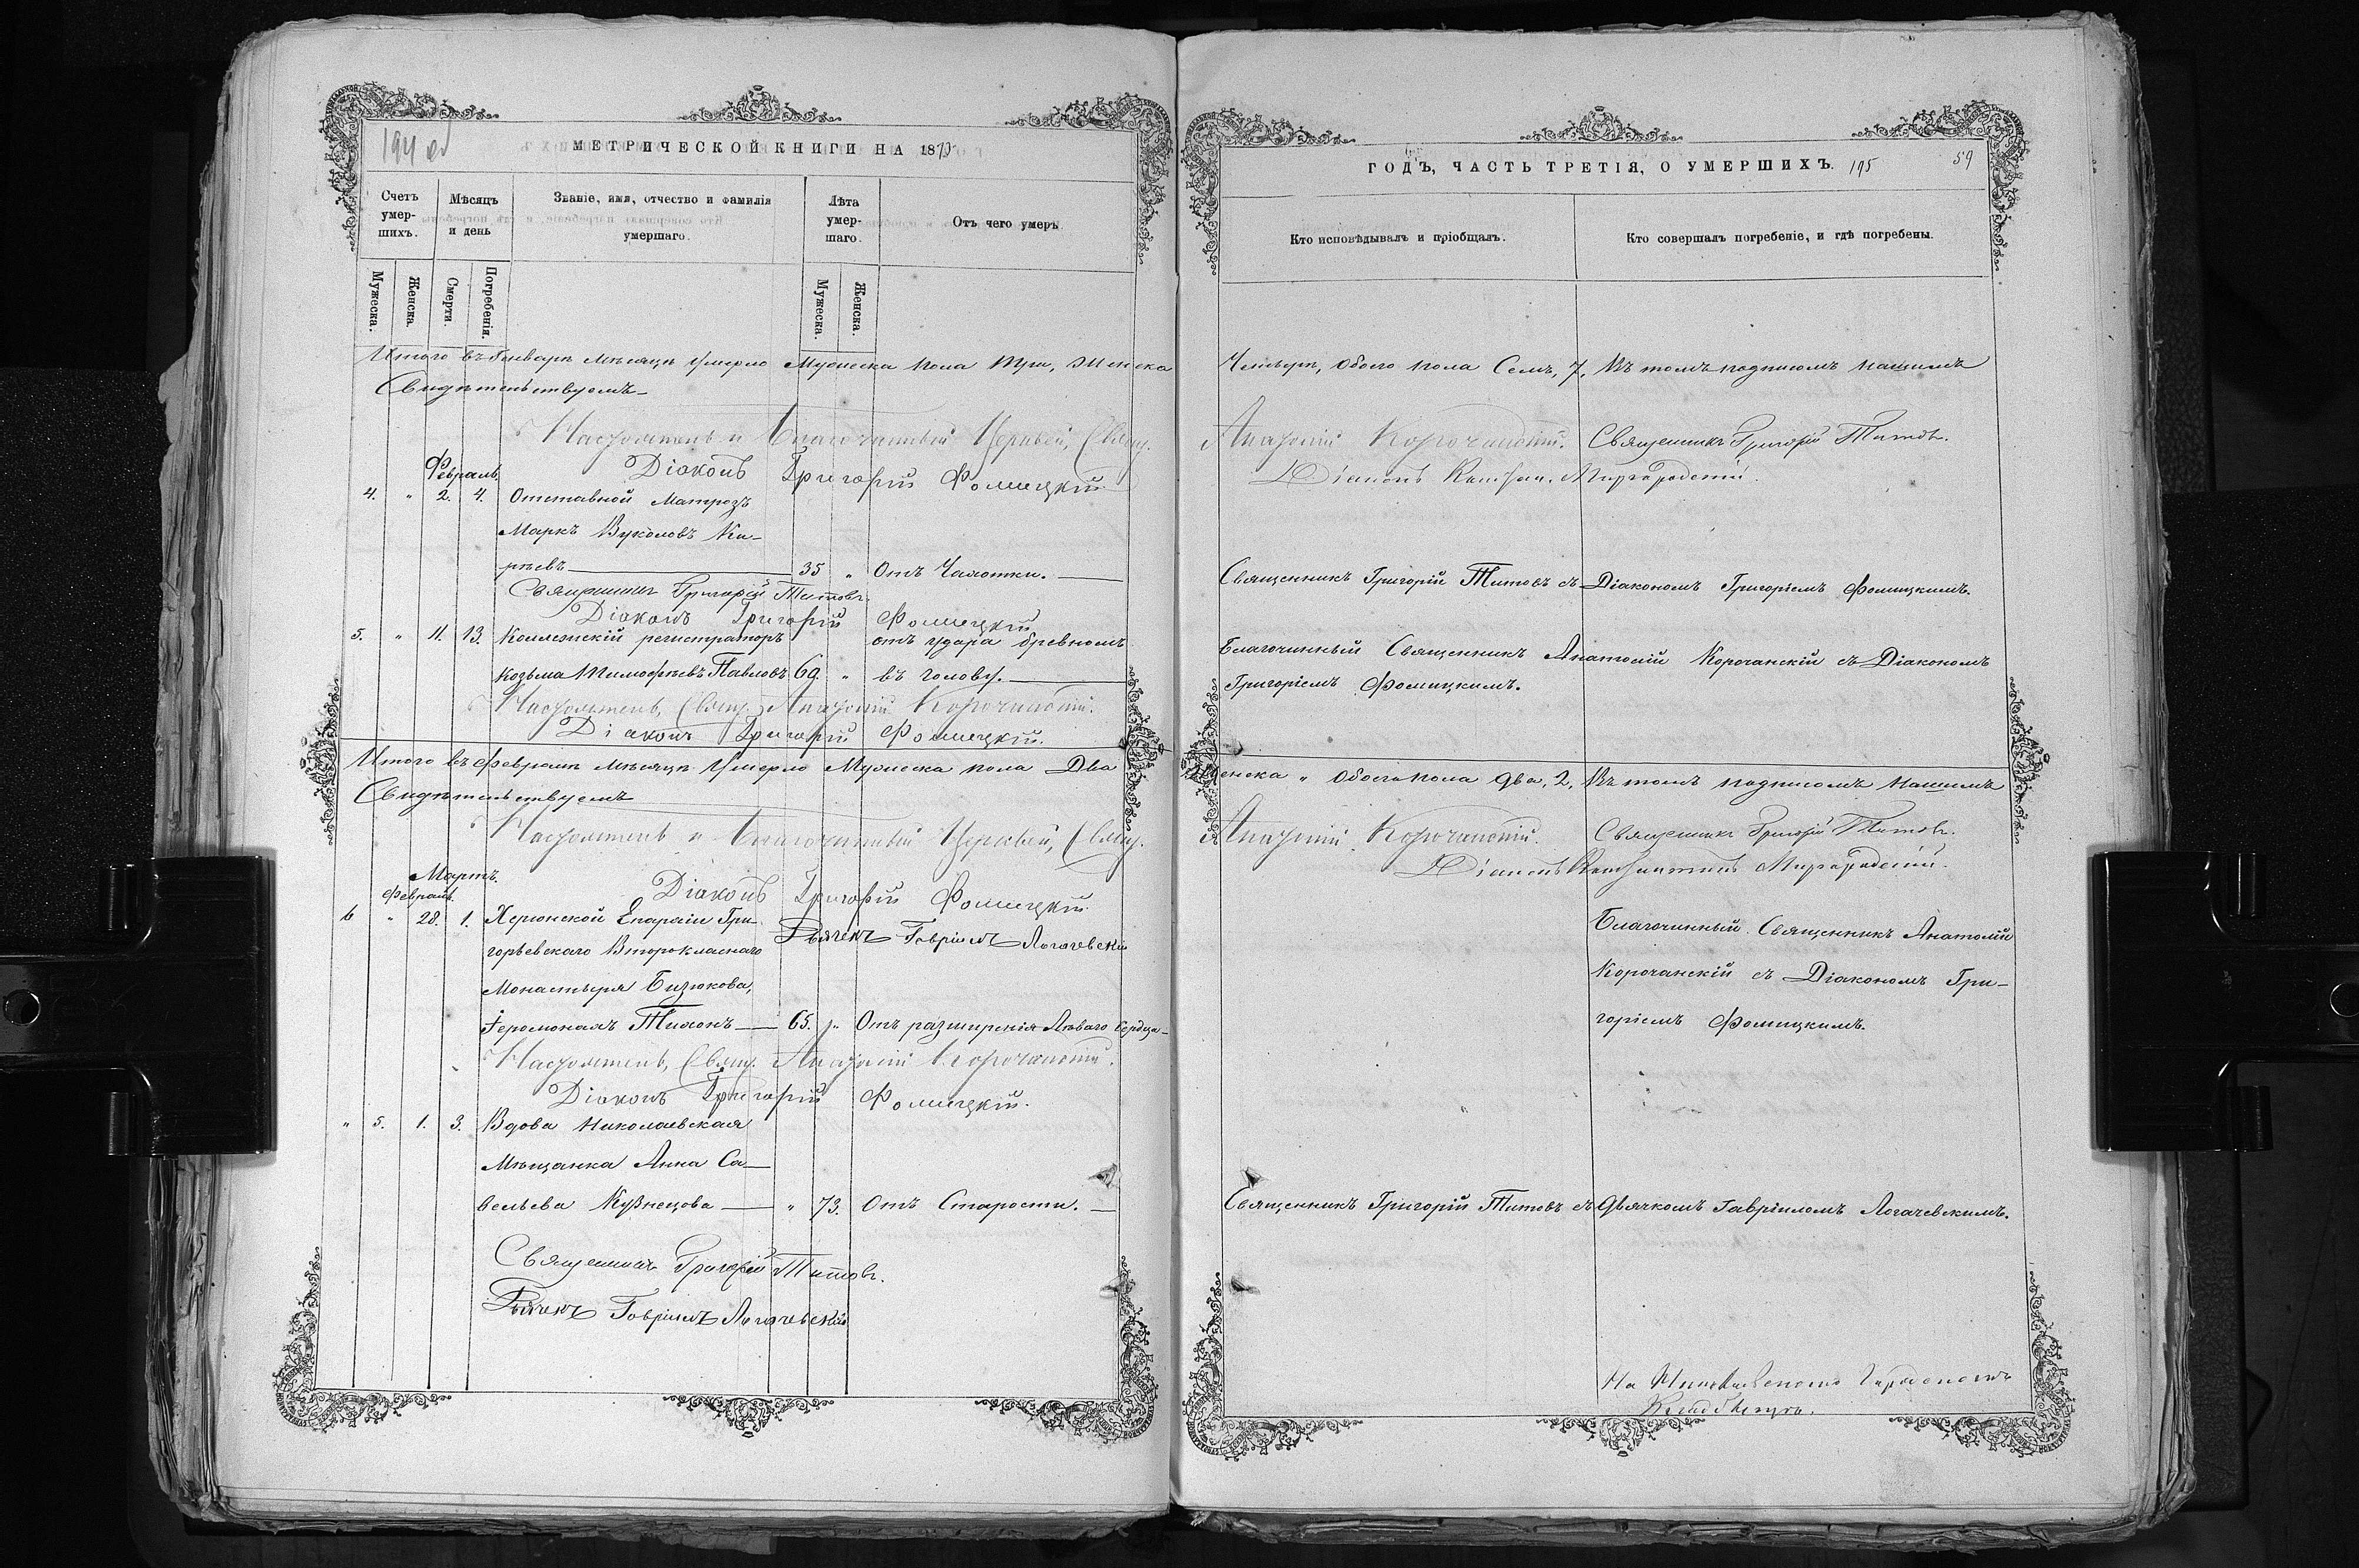 194 об
МЕТРИЧЕСКОЙ КНИГИ НА 1875
Счетъ умер-шихъ.
Мѣсяцъ и день
Званіе, имя, отчество и фамилія умершаго.
Лѣта умер-шаго.
Отъ чего умеръ
Мужеска.
Женска.
Смерти.
Погребенія.
Мужеска.
Женска.
Итого въ Январѣ мѣсяцѣ умерло Мужеска пола три, Женска
Свидѣтельствуемъ
Настоятель и Благочинный Церквей, Свящ.
Діаконъ Григорій Фомицкій
Февраль.
4. " 2. 4. Отставной Матрозъ
Маркъ Вуколовъ Ки-
рѣевъ 35 " Отъ Чахотки.
Священникъ Григорій Титовъ
Діаконъ Григорій Фомицкій
5. " 11. 13. Коллежскій регистраторъ отъ удара бревномъ
Козьма Тимофѣевъ Павловъ 69. " въ голову.
Настоятель, Свящ. Анатолій Корочанскій.
Діаконъ Григорій Фомицкій.
Итого въ Февралѣ мѣсяцѣ Умерло Мужеска пола Два
Свидѣтельствуемъ
Настоятель и Благочинный Церквей, Свящ.
Мартъ.
Діаконъ Григорій Фомицкій
Февраль.
6 " 28. 1. Херсонской Епархіи Гри-
Дьячекъ Гавріилъ Логачевскій
горьевскаго Второкласнаго
Монастыря Бизюкова,
Іеромонахъ Тихонъ 65. " Отъ разширенія Лѣваго сердца
Настоятель, Свящ. Анатолій Корочанскій.
Діаконъ Григорій Фомицкій.
" 5. 1. 3. Вдова Николаевская
Мѣщанка Анна Са-
вельева Кузнецова " 73. Отъ Старости.
Священникъ Григорій Титовъ.
Дьячекъ Гавріилъ Логачевскій
ГОДЪ, ЧАСТЬ ТРЕТІЯ, О УМЕРШИХЪ. 195
59
Кто исповѣдывалъ и пріобщалъ.
Кто совершалъ погребеніе, и гдѣ погребены.
Четыре, Обоего пола Семь, 7, Въ томъ подписомъ нашимъ
Анатолій Корочанскій. Священникъ Григорій Титовъ.
Діаконъ Миргородскій.
Священникъ Григорій Титовъ съ Діакономъ Григоріемъ Фомицкимъ.
Благочинный Священникъ Анатолій Корочанскій съ Діакономъ
Григоріемъ Фомицкимъ.
Женска " Обоего пола два, 2, Въ томъ подписомъ Нашимъ
Анатолій Корочанскій. Священникъ Григорій Титовъ.
Діаконъ Константинъ Миргородскій.
Благочинный Священникъ Анатолій
Корочанскій съ Діакономъ Гри-
горіемъ Фомицкимъ.
Священникъ Григорій Титовъ съ Дьячкомъ Гавріиломъ Логачевскимъ.
На Николаевскомъ Городскомъ
Кладбищѣ.